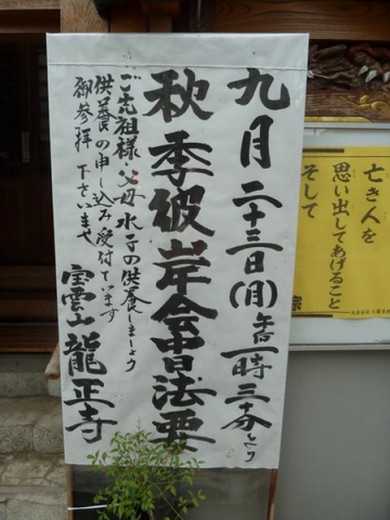 九月二十三日(月)午后一時三十分より
秋季彼岸会中日法要
ご先祖様・父母・水子の供養しましょう
供養の申し込み受付ています
御参拝下さいませ
龍正寺
亡き人を
思い出してあげること
そして
宗